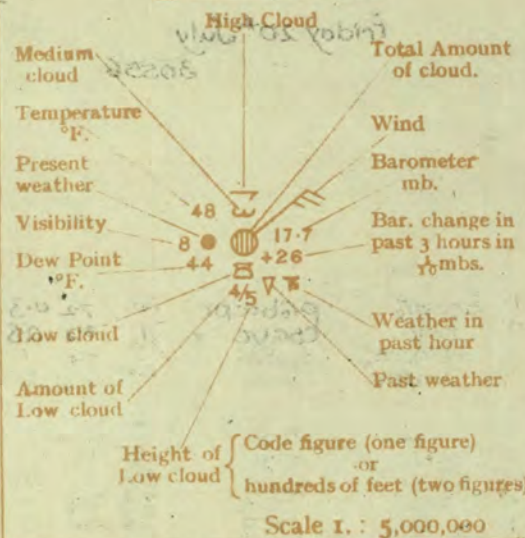 High Cloud
Friday 20th July
Medium
cloud
30556
Total Amount
of cloud.
Temperature
°F.
Wind
Present
weather
Barometer
mb.
48
17·7
Visibility
8
Bar. change in
past 3 hours in
1/10 mbs.
+26
Dew Point
°F.
44
4/5
Low cloud
Weather in
past hour
Amount of
Low cloud
Past weather
Height of
Low cloud
Code figure (one figure)
or
hundreds of feet (two figures)
Scale 1. : 5,000,000